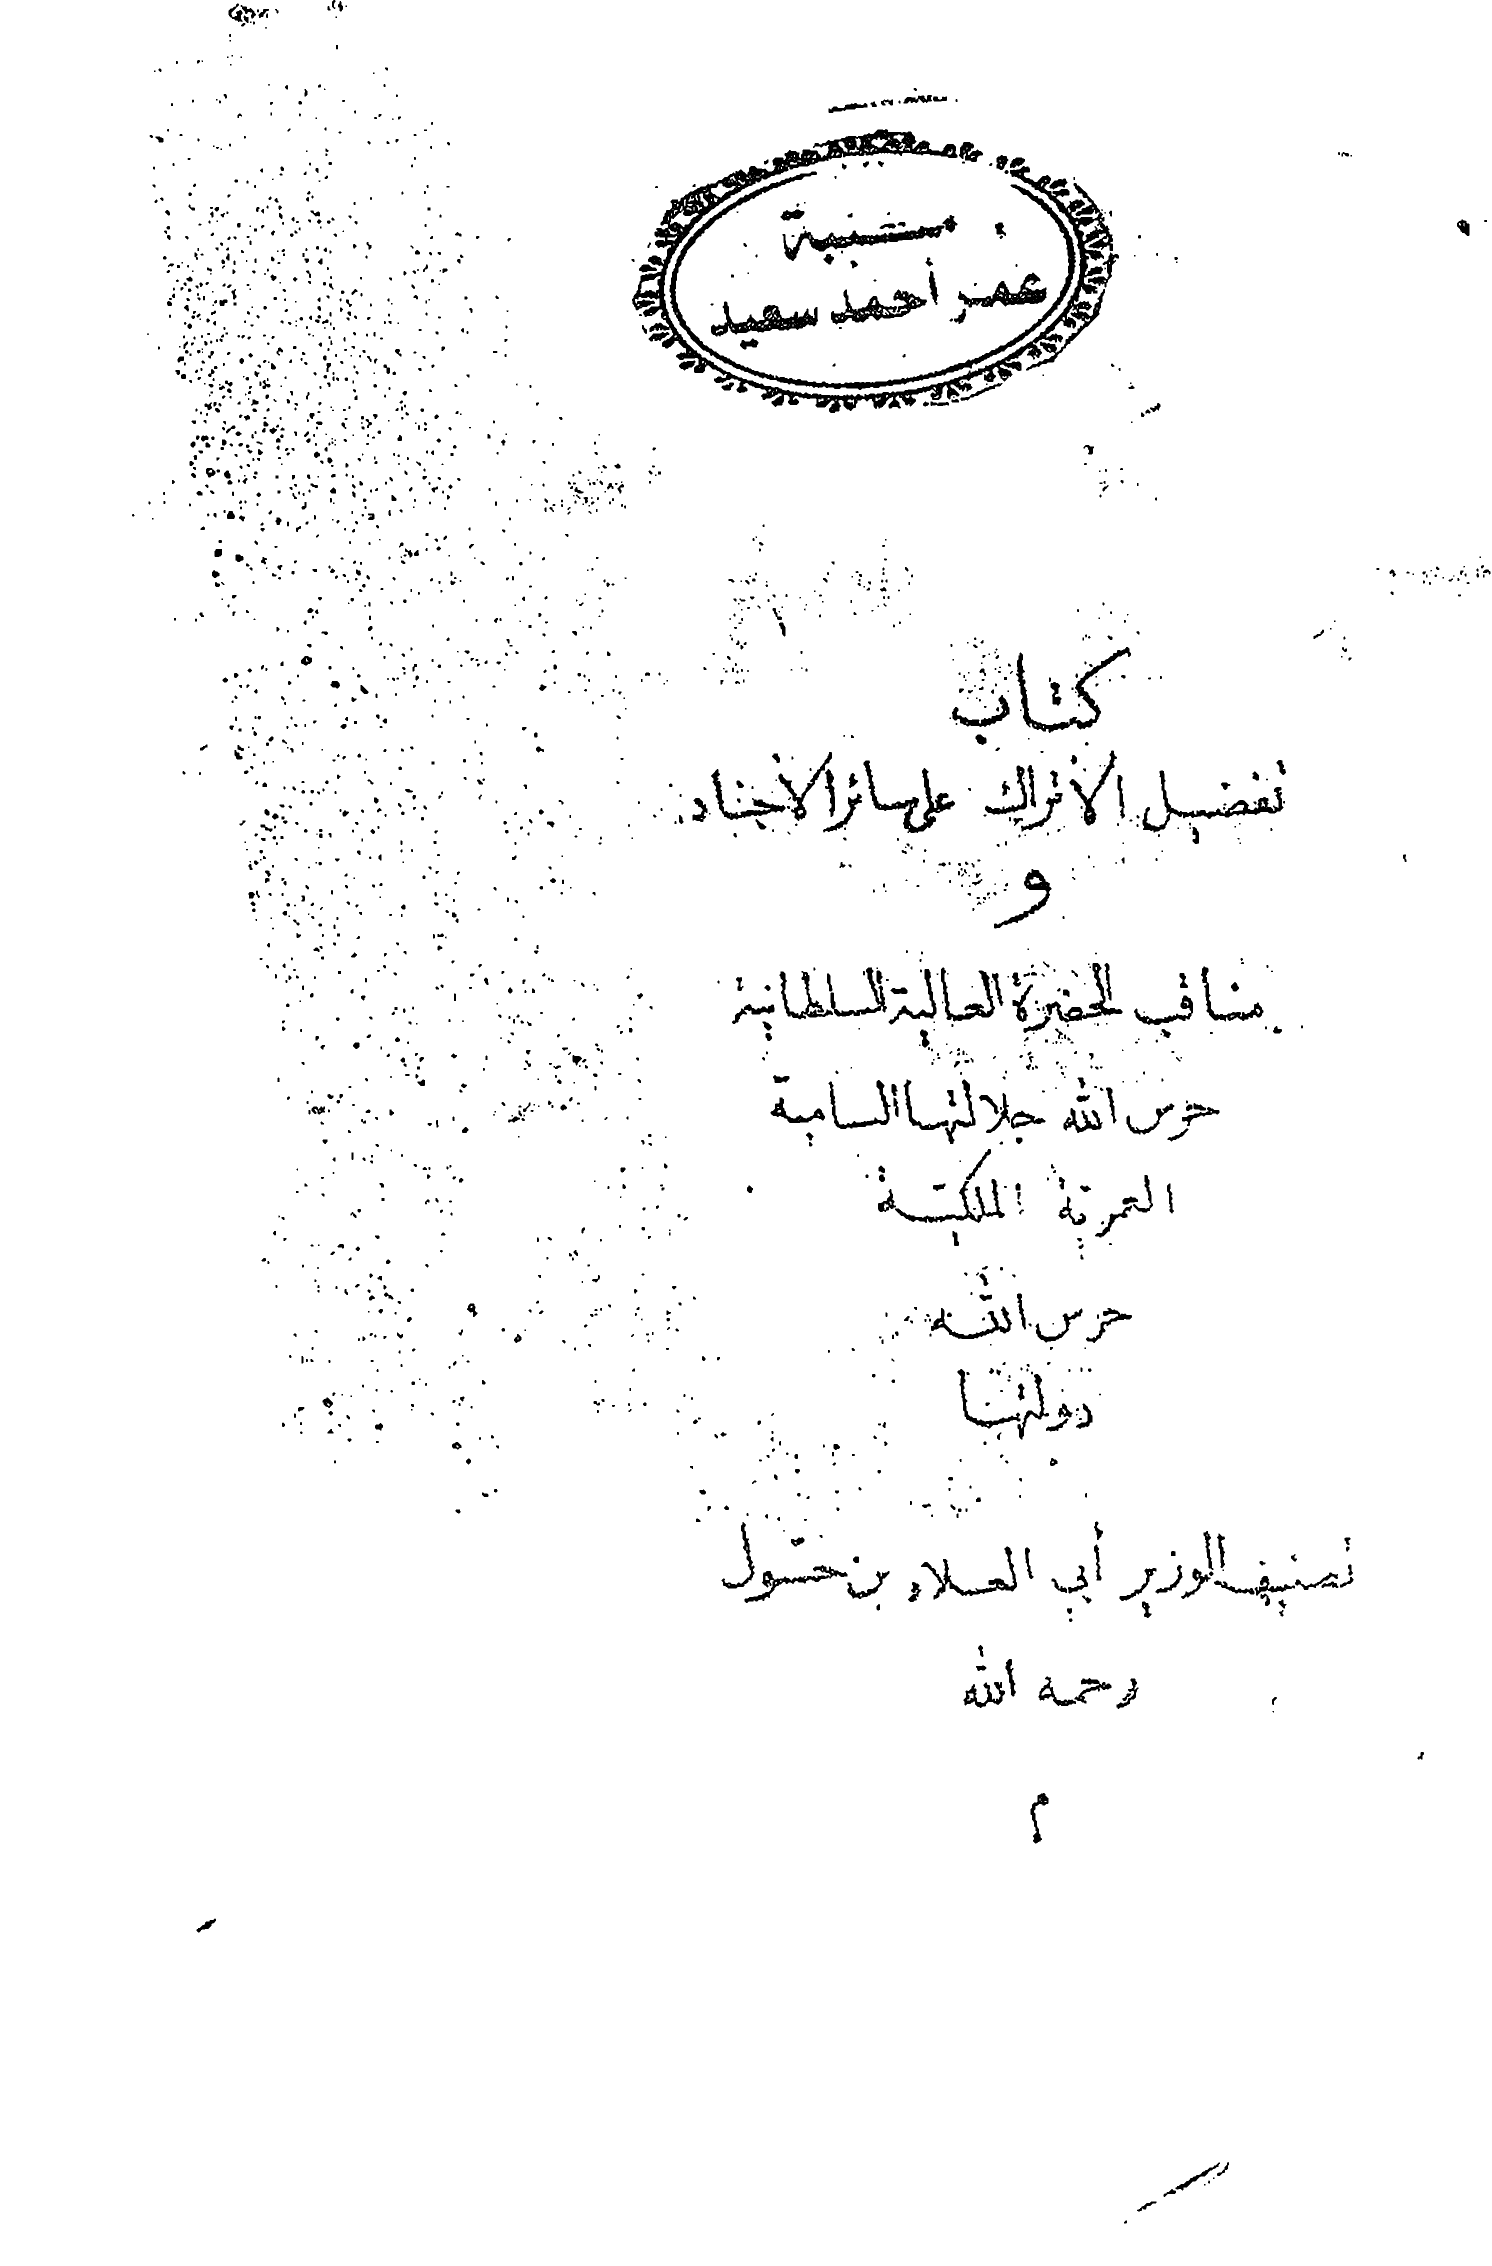 عمر أحمد سعيد
كتاب
تفضيل الأتراك على سائر الأجناد
و
مناقب الحضرة العالية السلطانية
حرس الله جلالتها السامية
الملكية
حرس الله
دولتها
تصنيف الوزير أبي العلاء بن حسّول
رحمه الله
م